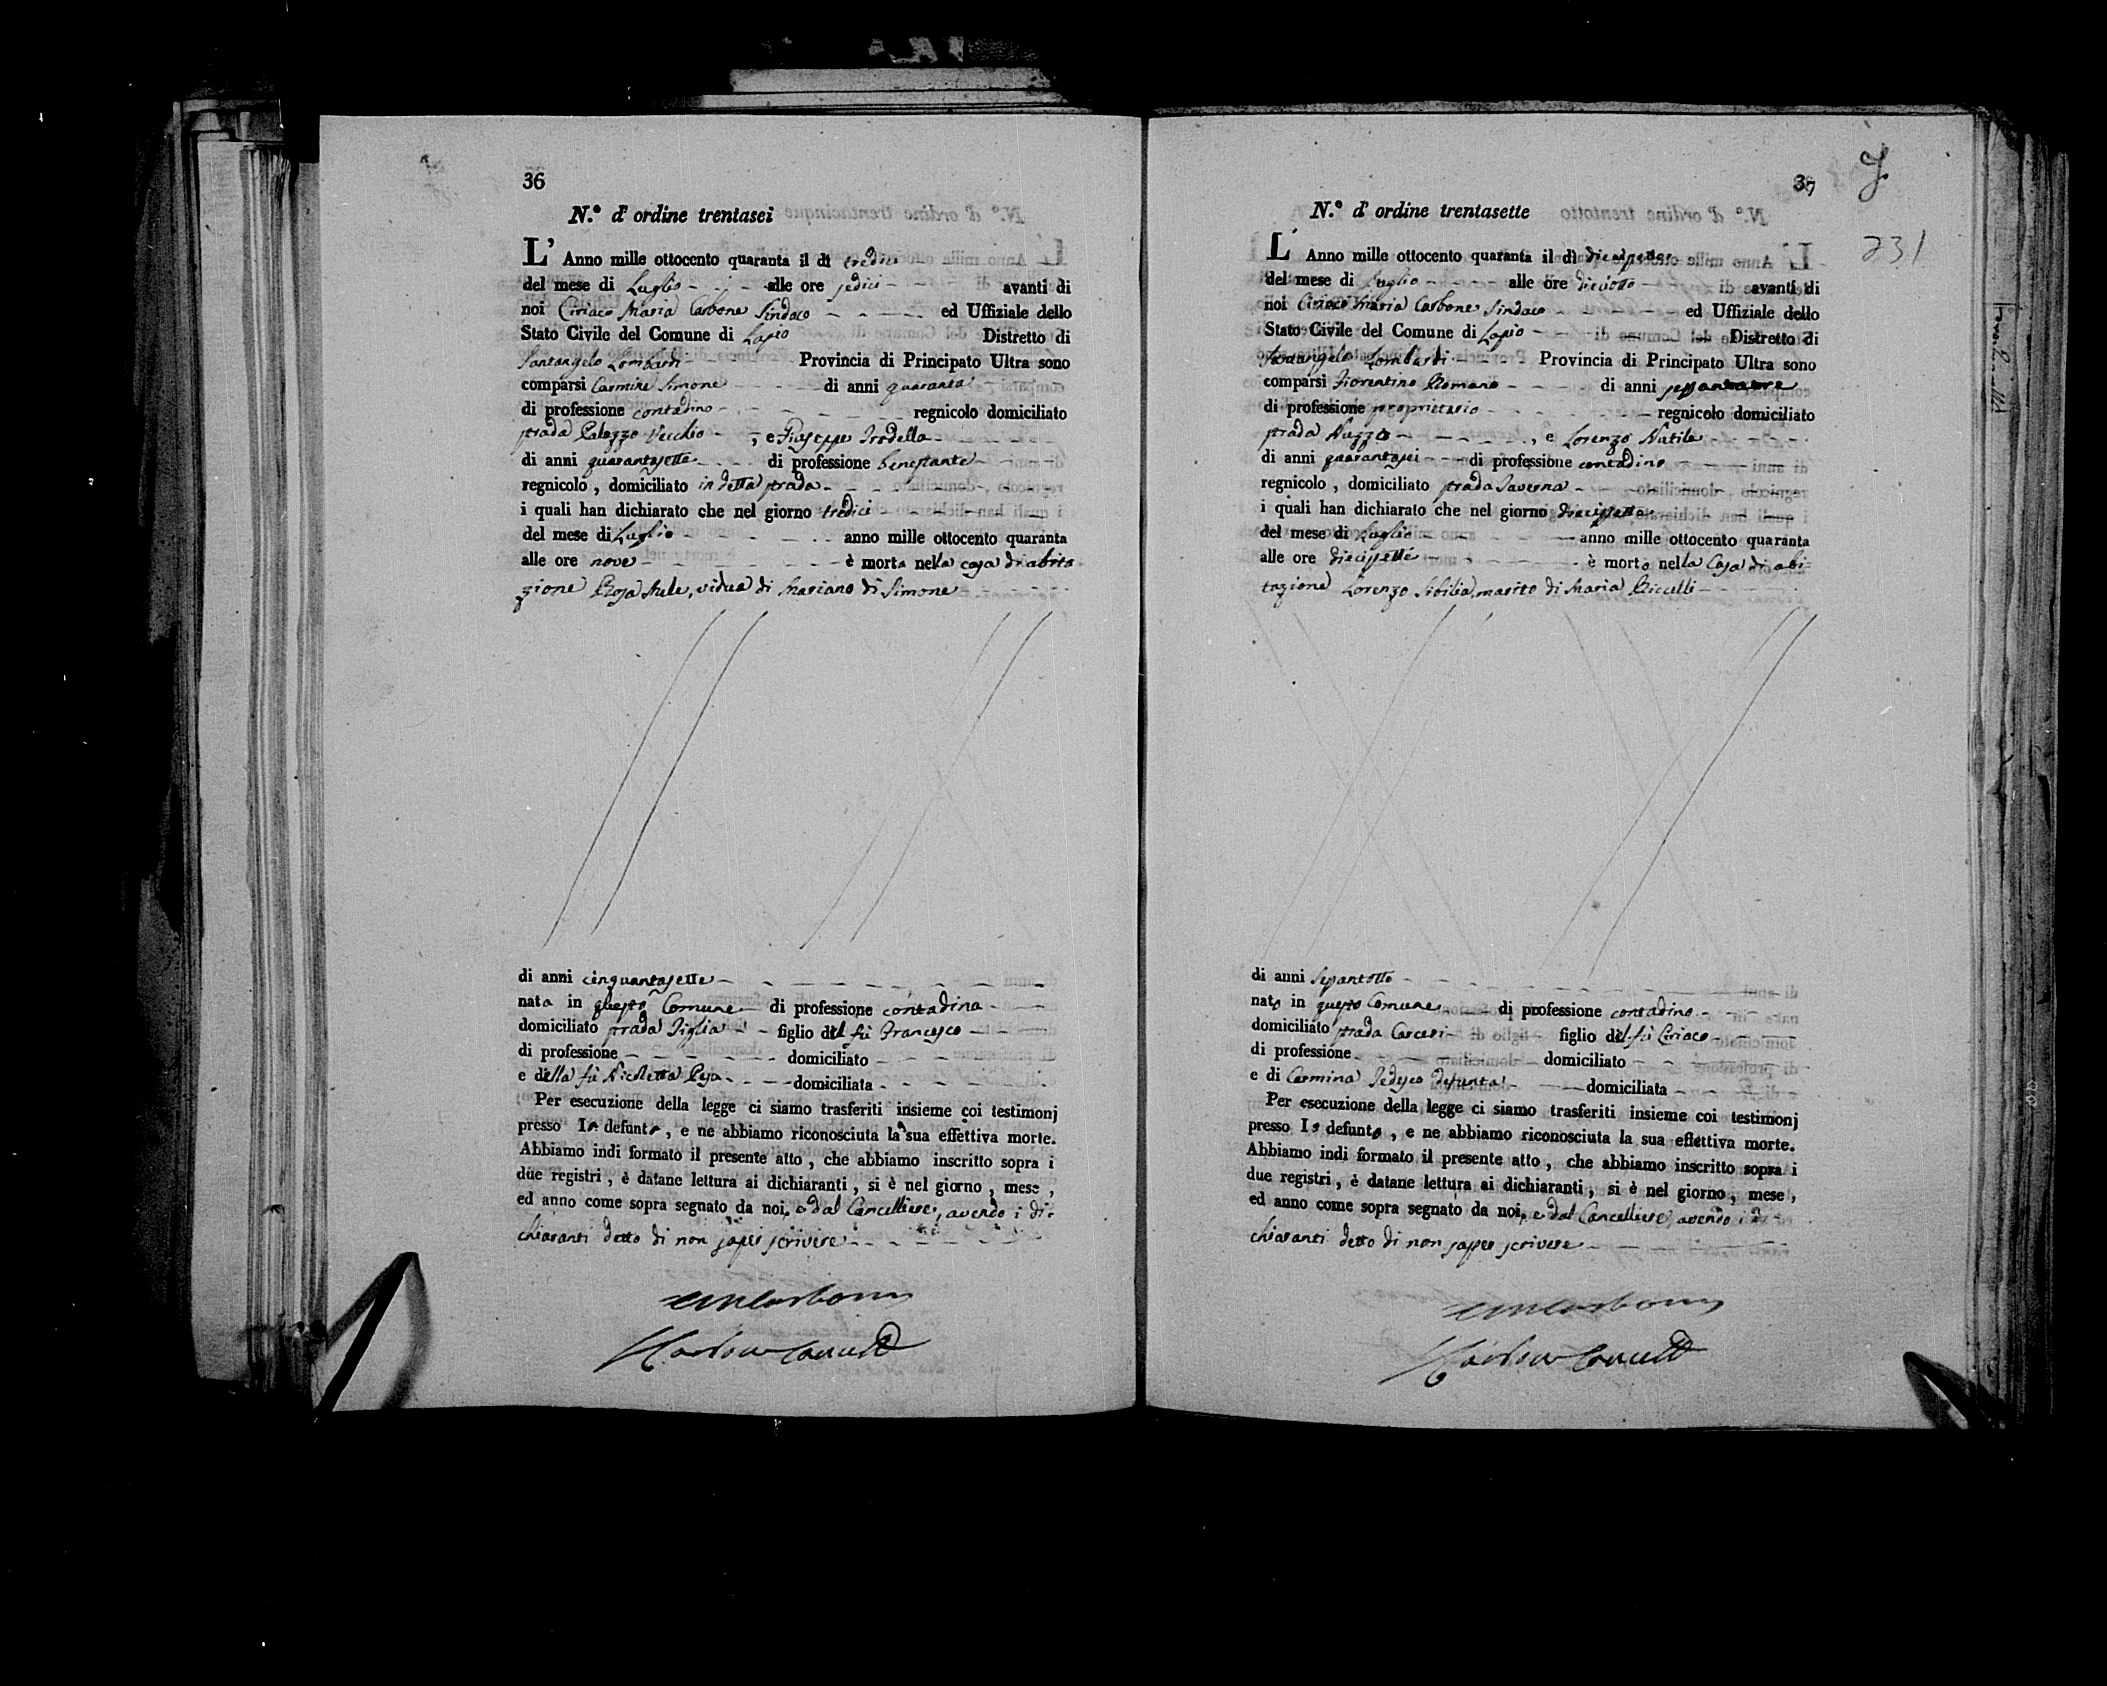 36
N.º d' ordine trentasei
L' Anno mille ottocento quaranta il dì tredici
del mese di Luglio alle ore sedici avanti di
noi Ciriaco Maria Carbone Sindaco ed Uffiziale dello
Stato Civile del Comune di Lapio Distretto di
Santangelo Lombardi Provincia di Principato Ultra sono
comparsi Carmine Simone di anni quaranta
di professione contadino regnicolo domiciliato
strada Palazzo Vecchio , e Giuseppe Trodella
di anni quarantasette di professione benestante
regnicolo , domiciliato in detta strada
i quali han dichiarato che nel giorno tredici
del mese di Luglio anno mille ottocento quaranta
alle ore nove è morta nella casa di abita
zione Rosa Mele, vidua di Mariano di Simone
di anni cinquantasette
nata in questo Comune di professione contadina
domiciliato strada Tiglia figlio del fù Francesco
di professione domiciliato
e della fù Nicoletta domiciliata
Per esecuzione della legge ci siamo trasferiti insieme coi testimonj
presso La defunta , e ne abbiamo riconosciuta la sua effettiva morte.
Abbiamo indi formato il presente atto , che abbiamo inscritto sopra i
due registri , è datane lettura ai dichiaranti , si è nel giorno , mese ,
ed anno come sopra segnato da noi, e dal Cancelliere, avendo i di-
chiaranti detto di non saper scrivere
37
231
N.º d' ordine trentasette
L' Anno mille ottocento quaranta il dì diecissette
del mese di Luglio alle ore dieciotto avanti di
noi Ciriaco Maria Carbone Sindaco ed Uffiziale dello
Stato Civile del Comune di Lapio Distretto di
Santangelo Lombardi Provincia di Principato Ultra sono
comparsi Fiorentino Romano di anni
di professione proprietario regnicolo domiciliato
strada Nuzzo , e Lorenzo Nutile
di anni quarantasei di professione contadino
regnicolo , domiciliato strada Taverna
i quali han dichiarato che nel giorno diecissette
del mese di Luglio anno mille ottocento quaranta
alle ore diecissette è morto nella Casa di abi=
tazione Lorenzo Sibilia, marito di Maria Riccelli
di anni Sessantotto
nato in questo Comune di professione contadino
domiciliato strada Carceri figlio del fù Ciriaco
di professione domiciliato
e di Carmina Tedesco defunta domiciliata
Per esecuzione della legge ci siamo trasferiti insieme coi testimonj
presso Lo defunto , e ne abbiamo riconosciuta la sua effettiva morte.
Abbiamo indi formato il presente atto , che abbiamo inscritto sopra i
due registri , è datane lettura ai dichiaranti , si è nel giorno , mese ,
ed anno come sopra segnato da noi, e dal Cancelliere, avendo i di-
chiaranti detto di non saper scrivere